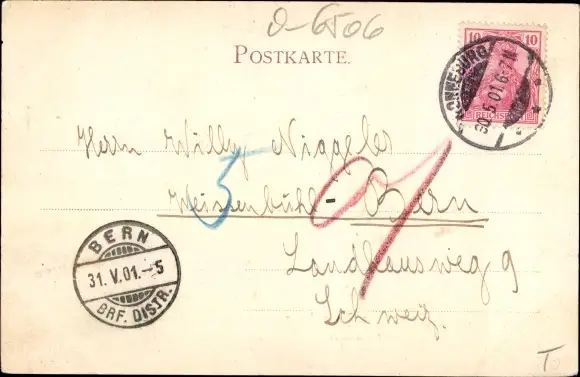 o-6506
POSTKARTE.
10 10
REICHSPOST
RONNEBURG
30.5.01.6-7N.
Herrn Willy Niggeler
5 9
Weissenbühl - Bern
Landhausweg 9
Schweiz.
BERN
31. V. 01. - 5
BRF. DISTR.
T